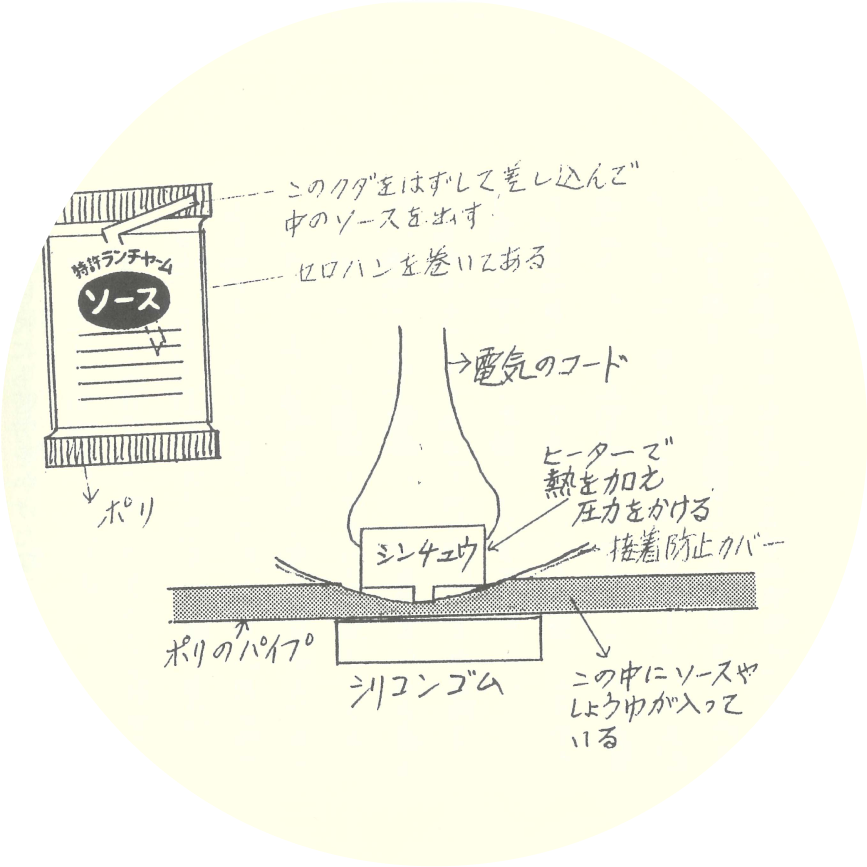 このクダをはずして差し込んで
中のソースを出す
セロハンを巻いてある
特許ランチャーム
ソース
ポリ
電気のコード
ヒーターで
熱を加え
圧力をかける
シンチュウ
接着防止カバー
ポリのパイプ
シリコンゴム
この中にソースや
しょうゆが入って
いる